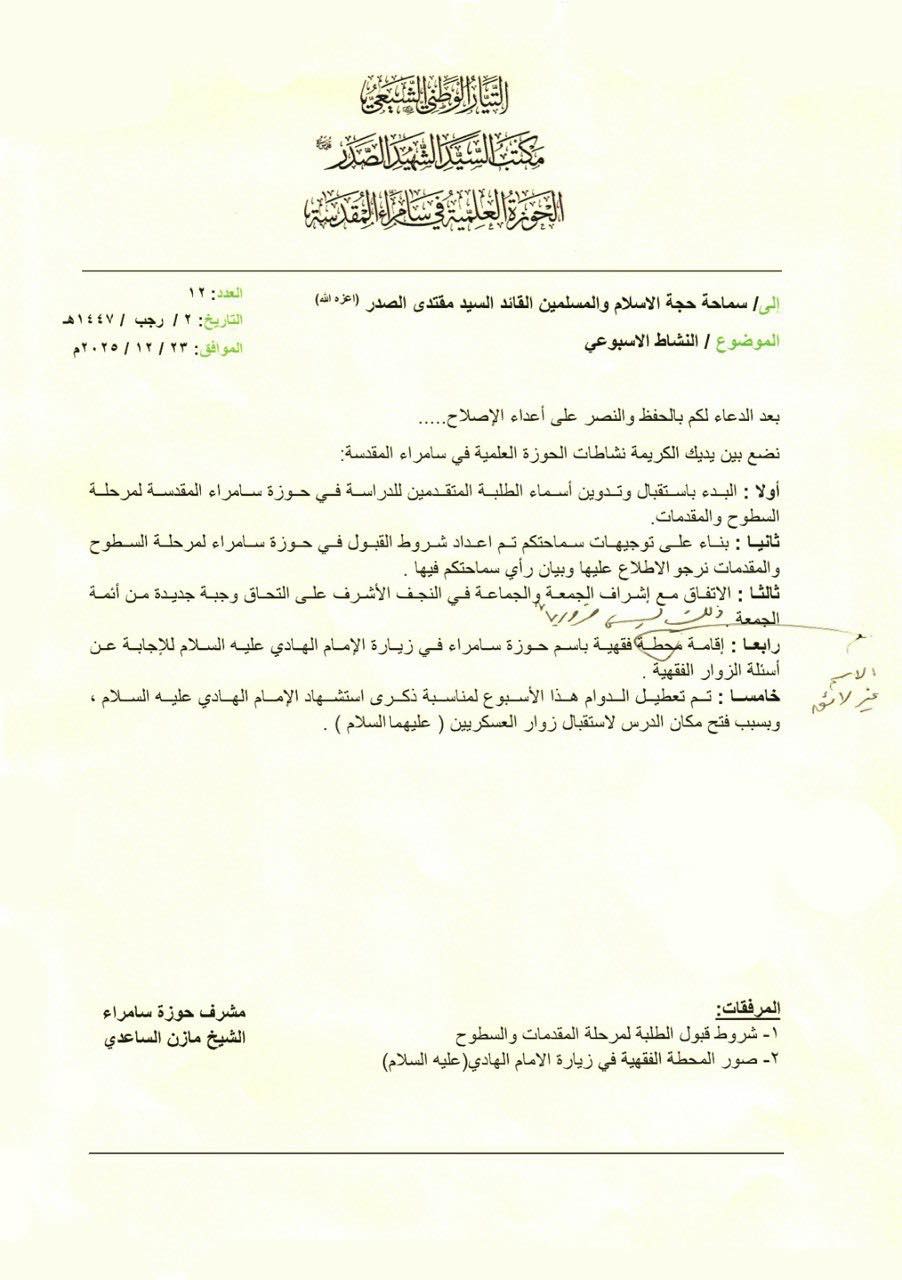 التيار الوطني الشيعي
مكتب السيد الشهيد الصدر
الحوزة العلمية في سامراء المقدسة
إلى/ سماحة حجة الاسلام والمسلمين القائد السيد مقتدى الصدر (اعزه الله)
الموضوع / النشاط الاسبوعي
العدد: ١٢
التاريخ: ٢ / رجب / ١٤٤٧هـ
الموافق: ٢٣ / ١٢ / ٢٠٢٥م
بعد الدعاء لكم بالحفظ والنصر على أعداء الإصلاح.....
نضع بين يديك الكريمة نشاطات الحوزة العلمية في سامراء المقدسة:
أولا : البدء باستقبال وتدوين أسماء الطلبة المتقدمين للدراسة في حوزة سامراء المقدسة لمرحلة
السطوح والمقدمات.
ثانيا : بناء على توجيهات سماحتكم تم اعداد شروط القبول في حوزة سامراء لمرحلة السطوح
والمقدمات نرجو الاطلاع عليها وبيان رأي سماحتكم فيها .
ثالثا : الاتفاق مع إشراف الجمعة والجماعة في النجف الأشرف على التحاق وجبة جديدة من أئمة
الجمعة.
ذلك ليس ضروريا
رابعا : إقامة محطة فقهية باسم حوزة سامراء في زيارة الإمام الهادي عليه السلام للإجابة عن
أسئلة الزوار الفقهية .
الاسم
غير لائق
خامسا : تم تعطيل الدوام هذا الأسبوع لمناسبة ذكرى استشهاد الإمام الهادي عليه السلام ،
وبسبب فتح مكان الدرس لاستقبال زوار العسكريين ( عليهما السلام ) .
المرفقات:
١- شروط قبول الطلبة لمرحلة المقدمات والسطوح
٢- صور المحطة الفقهية في زيارة الامام الهادي(عليه السلام)
مشرف حوزة سامراء
الشيخ مازن الساعدي